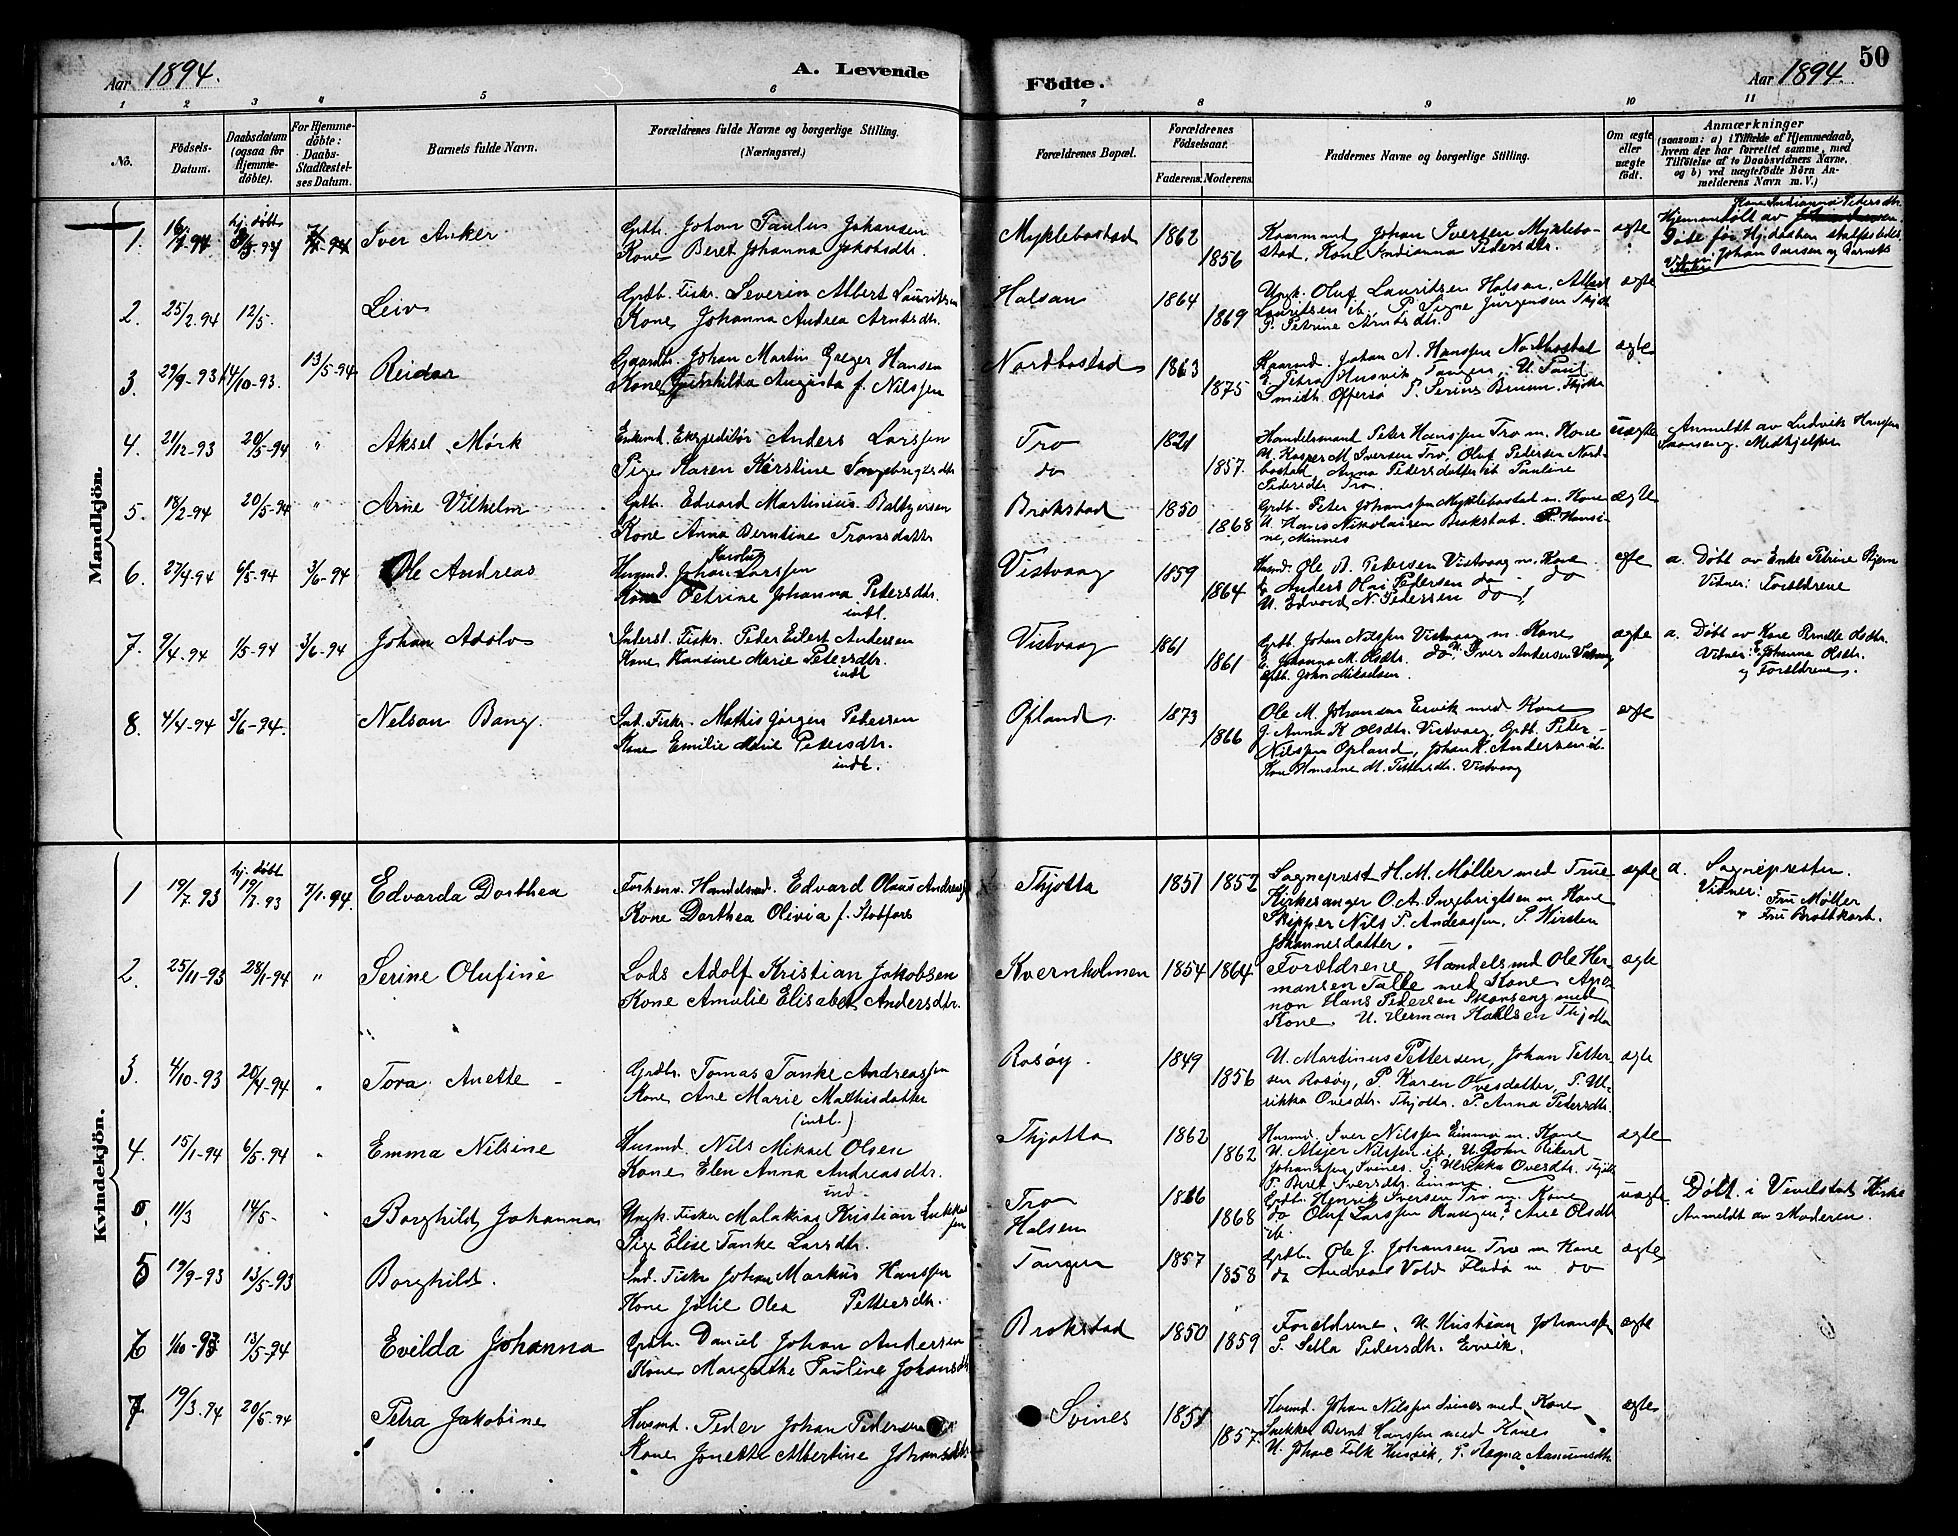 Aar 1894.
A. Levende
Födte.
Aar 1894.
50
1 2 3 4 5 6 7 8 9 10 11
No.
Födsels-Datum.
Daabsdatum (ogsaa for Hjemme-döbte).
For Hjemme-döbte: Daabs-Stadfæstel-ses Datum.
Barnets fulde Navn.
Forældrenes fulde Navne og borgerlige Stilling.
(Næringsvei.)
Forældrenes Bopæl.
Forældrenes Födselsaar.
Faderens. Moderens.
Faddernes Navne og borgerlige Stilling.
Om ægte eller uægte födt.
Anmærkninger
(saasom: a) i Tilfælde af Hjemmedaab,
hvem der har forrettet samme, med
Tilföielse af to Daabsvidners Navne,
og b) ved uægtefödte Börn An-
melderens Navn m. V.)
Mandkjön.
1. hj. døbt Iver Anker
Grdb. Johan Paulus Johansen
Kone Beret Johanna Jakobsdtr.
Myklebostad 1862 1856
Kaarmand Johan Iversen Myklebo-
stad, Kone Indianna Pedersdtr.
ægte
Kone Indianna Pedersdtr.
Hjemmedøbt av
2. 25/2.94 12/5. Leiv
Grdb. Fiskr. Severin Albert Lauritsen
Kone Johanna Andrea Arntsdtr.
Halsan 1864 1869
Ungk. Oluf Lauritsen Halsan, Albert
Lauritsen ib. P. Signe Jürgensen Thjøtt
P. Petrine Arntsdtr.
ægte
3. 29/9-93 14/10-93. 13/5-94 Reidar
Gaardbr. Johan Martin Gæger Hansen
Kone Gunhilda Augusta f. Nilssen
Nordbostad 1863 1875
Kaarmd. Johan N. Hanssen Nordbostad
E. Petra Husvik Tangen. U. Paul
Smith. Offersø P. Serine Bruun. Thjøtta
ægte
4. 21/12-93 20/5-94 " Aksel Mørk
Enkemd. Ekspeditør Anders Larssen
Pige Karen Kirstine Ingebrigtsdtr.
Tro
do
1821 1857.
Handelsmand Peter Hanssen Tro m. Kone
U. Kasper M. Iversen Tro, Oluf Pedersen Nord-
bostad, Anna Pedersdatter ib Pauline
Pedersdtr. Tro.
uægte
Anmeldt av Ludvik Hanssen
Medhjelper
5. 18/2-94 20/5-94 " Arne Vilhelm
Grdb. Edvard Martinius Baltzersen
Kone Anna Berntine Tronsdatter
Brokstad 1850 1868
Grdb. Peter Johanssen Myklebostad m. Kone
U. Hans Nikolaisen Brokstad. P. Hansi-
ne, Minnes
ægte
6. 27/4-94 6/5-94 3/6-94 Ole Andreas
Husmd. Johan Karolus Larssen
Kone Petrine Johanna Pedersdtr.
indl.
Vistvaag 1859 1864
Husmd. Ole B. Petersen Vistvaag m. Kone
Anders Olai Pedersen do - do
U. Edvard N. Pedersen do
ægte
a. Døbt av Enke Petrine Hjem
Vidner: Forældrene
7. 9/4-94 1/5-94 3/6-94 Johan Adolv
Inderst. Fiskr. Peder Eilert Andersen
Kone Hansine Marie Petersdtr.
indl
Vistvaag 1861 1861
Grdb. Johan Nilssen Vistvaag m. Kone
E. Johanna M. Olsdtr. do U. Iver Andersen Vistvaag
Grdb. John Mikaelsen.
ægte
a. Døbt av Kone Olsdtr.
Vidner: E. Johanna Olsdtr.
og Forældrene.
8. 4/4-94 3/6-94. Nelson Bang.
Ind. Fiskr. Mathis Jørgen Petersen
Kone Emilie Marie Petersdtr.
indl.
Opland. 1873 1866
Ole M. Johansen Ervik med Kone
J. Anna K Olsdtr. Vistvaag, Grdb. Peter
Nilssen Opland, Johan K. Andersen ib.
Kone Hansine M. Pettersdtr. Vistvaag
ægte
Kvindekjön.
1 19/7.93 hj. døbt 19/7.93 7/1.94. Edvarda Dorthea
Forhenv. Handelsmd. Edvard Olaus Andreassen
Kone Dorthea Olivia f. Stokfors
Thjøtta 1851 1852
Sogneprest H. M. Møller med Frue
Kirkesanger O. A. Ingebrigtsen m Kone
Skipper Nils P. Andreassen, P. Kirsten
Johannesdatter.
ægte
a. Sognepresten.
Vidner: Fru Møller
" Fru Brottkorb.
2. 25/11-93 28/1-94 " Serine Olufine
Lods Adolf Kristian Jakobsen
Kone Amalie Elisabet Andersdtr.
Kvernholmen 1854 1864
Forældrene Handelsmd Ole Her-
mansen Talle med Kone
Hans Pedersen Skonseng med
Kone. U. Herman Karlsen Thjøtta
ægte
3. 4/10-93 20/4-94 " Tora Anette
Grdb. Tomas Tanke Andreassen
Kone Ane Marie Mathisdatter
(indl.)
Rosøy. 1849 1856
U. Martinus Pettersen, Johan Petter-
sen Rosøy, P. Karen Ovesdatter, P. Ul-
rikka Ovesdtr. Thjøtta. P. Anna Pedersdtr.
ægte
4. 15/1-94 6/5.94 " Emma Nilsine
Husmd. Nils Mikael Olsen
Kone Elen Anna Andreasdtr.
ind.
Thjøtta 1862 1862
Husmd. Iver Nilssen Einmo m. Kone
U. Mejer Nilssen ib, U. John Rikard
Johanssen, Svines. P. Ulrikka Ovesdtr. Thjøtta
P. Beret Iversdtr. Einmo.
ægte
5. 11/3 14/5- Borghild Johanna
Ungk. Fisker Malakias Kristian
Pige Elise Tanke Larsdtr.
Tro
Halsen
1866 1868
Grdb. Henrik Iversen Tro m. Kone
do Oluf Larssen Ane Olsdtr
ib.
uægte
Døbt i Vevelstad Kirke
Anmeldt av Moderen.
5 19/9-93 13/5-93 Borghild.
Ind. Fiskr Johan Markus Hanssen
Kone Julie Olea Pettersdtr.
Tangen 1857 1858
Grdb. Ole J. Johansen Tro m Kone
do Andreas Vold Flodø m do
ægte
6 1/10-93 13/5-94 Evilda Johanna
Grdb. Daniel Johan Andersen
Kone Margrethe Pauline Johansdtr
Brokstad 1850 1859
Forældrene. U. Kristian Johanssen
P. Sella Pedersdtr. Ervik.
ægte
7 19/3.94 20/5.94 Petra Jakobine
Husmd. Peder Johan Pedersen
Kone Jonette Albertine Johansdtr
Svines 1851 1857.
Husmd. Johan Nilssen Svines med Kone
Snekker Bernt Hanssen med Kone
U. Johan Falk Husvik, P. Magna
ægte